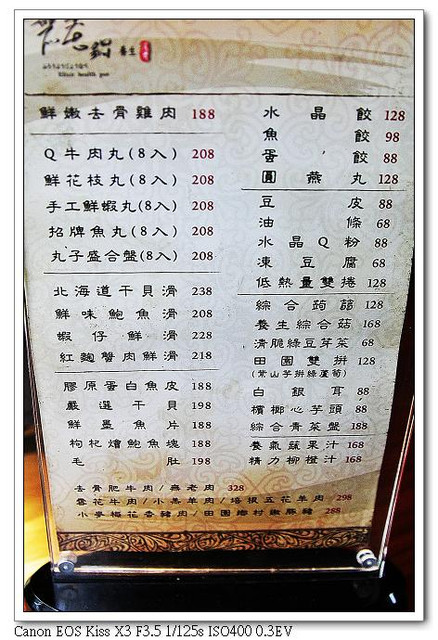 鍋 養生
Elixir health pot
鮮嫩去骨雞肉 188
Q牛肉丸(8入) 208
鮮花枝丸(8入) 208
手工鮮蝦丸(8入) 208
招牌魚丸(8入) 208
丸子盛合盤(8入) 208
北海道干貝滑 238
鮮味鮑魚滑 208
蝦仔鮮滑 228
紅麴蟹肉鮮滑 218
膠原蛋白魚皮 188
嚴選干貝 198
鮮墨魚片 188
枸杞燴鮑魚塊 188
毛肚 198
水晶餃 128
魚餃 98
蛋餃 88
圓燕丸 128
豆皮 88
油條 68
水晶Q粉 88
凍豆腐 68
低熱量雙捲 128
綜合蒟蒻 128
養生綜合菇 168
清脆綠豆芽菜 68
田園雙拼 128
(紫山芋拼綠蘆筍)
白銀耳 88
檳榔心芋頭 88
綜合青菜盤 188
養氣蔬果汁 168
精力柳橙汁 168
去骨肥牛肉/無老肉 328
霜花牛肉/小羔羊肉/培根五花羊肉 298
小麥梅花香豬肉/田園鄉村嫩豚豬 288
Canon EOS Kiss X3 F3.5 1/125s ISO400 0.3EV